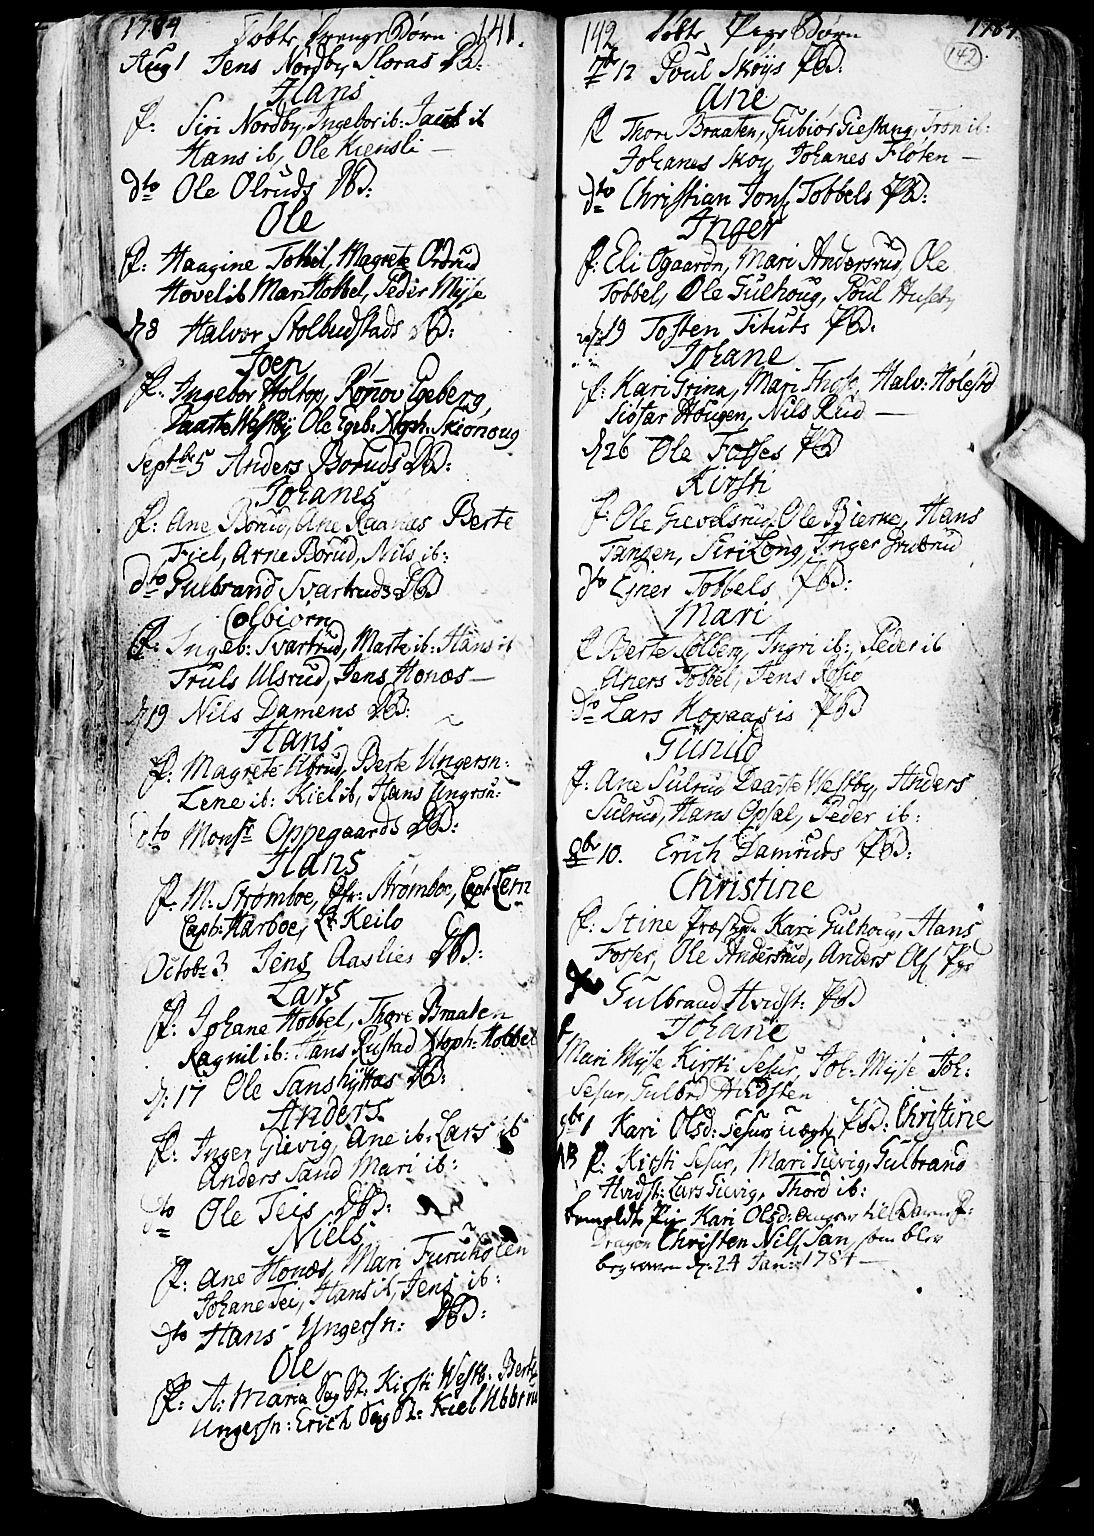 1784 Døbte Drenge Børn 141.
Aug 1 Jens Nordby Floras DB:
Hans
f: Siri Nordby, Ingebor ib: Jacob ib
Hans ib, Ole Kiensli —
dto Ole Olruds DB:
Ole
f: Haagine Tobbel, Magrete Ordrud
Høvel ib Mari Hobbel, Peder Mÿse
d 8 Halvor Stolbudstads DB:
Joen
f: Ingebor Holtop, Rønov Egeberg,
Daarte Westby Ole Egeb: Xtoph: Skiønoug
Septbr 5 Anders Boruds DB:
Johanes
f: Ane Borud, Ane Raanaes Berte
Fiel, Arne Borud, Nils ib:
dto Gulbrand Svartruds DB
Colbiørn
f: Ingeb: Svartrud, Marte ib: Hans ib
Truls Ulsrud, Jens Honæs —
d 19 Nils Damens DB:
Hans
f: Magrete Ubrud, Berte Ungersn:
Lene ib: Kiel ib, Hans Ungersn:
dto Monsr Oppegaards DB:
Hans
f. M: Strømboe, Strømboe, Capt: Lem
Capt: Harboe, Lt Keilo
Octobr 3 Jens Aaslies DB:
Lars
f: Johane Hobbel, Thore Braaten
Ragnil ib: Hans Rustad Xtoph: Hobbel
d: 17 Ole Sanshÿttas DB:
Anders
f: Inger Gievig, Ane ib: Lars ib
Anders Sand Mari ib:
dto Ole Teis DB:
Niels
f: Ane Honæs, Mari Furuholen
Johane Tei, Hans ib, Jens ib:
dto Hans Ungersn: DB:
Ole
f: A: Maria Kirsti Westb: Berte
Ungersn: Erich Kiel Ubbrud
142 Døbte Pige Børn 1784
142
7br 12 Poul Skøÿs PB:
Ane
f Thore Braaten, Gubiør Giestang, Tron ib:
Johanes Skoÿ, Johanes Floten —
dto Christian Jons, Tobbels PB:
Inger
f: Eli Ogaardn, Mari Andersrud, Ole
Tobbel, Ole Gulhoug, Poul Huseby
19 Tosten Tituts PB:
Johane
f: Kari Grina, Mari Halv: Holestd
Sidsar Hougen, Nils Rud —
d 26 Ole Fosses PB
Kirsti
f: Ole Grevelsrud, Ole Bierke, Hans
Tangen, Siri Long, Inger Grubrud
dto Ejner Tobbels PB:
Mari
f Berte Solberg, Ingri ib:, Peder ib
Aners Tobbel, Jens
dto Lars Kopaasis PB
Gunild
f: Ane Sulrud Daarte Westby, Anders
Sulrud, Hans Opsal, Peder ib:
8br 10. Erich Damruds PB:
Christine
f: Stine Kari Gulhoug, Hans
Fosser, Ole Andersrud, Anders
dto Gulbrand Hvidst: PB
Johane
f
Mari Mÿse Kirsti Sesur, Joh: Mÿse Joh:
Sesur, Gulbrd Hvidsten
9br 1 Kari Olsd: Sesur uægte PB: Christine
f: Kirsti Sesur, Mari Gievig, Gulbrand
Hvidst: Lars Gievig, Thord ib:
bemeldte Pige Kari Olsd: angav til
Dragon Christen Nils San, som blev
begraven d: 24 Jan: 1784 —